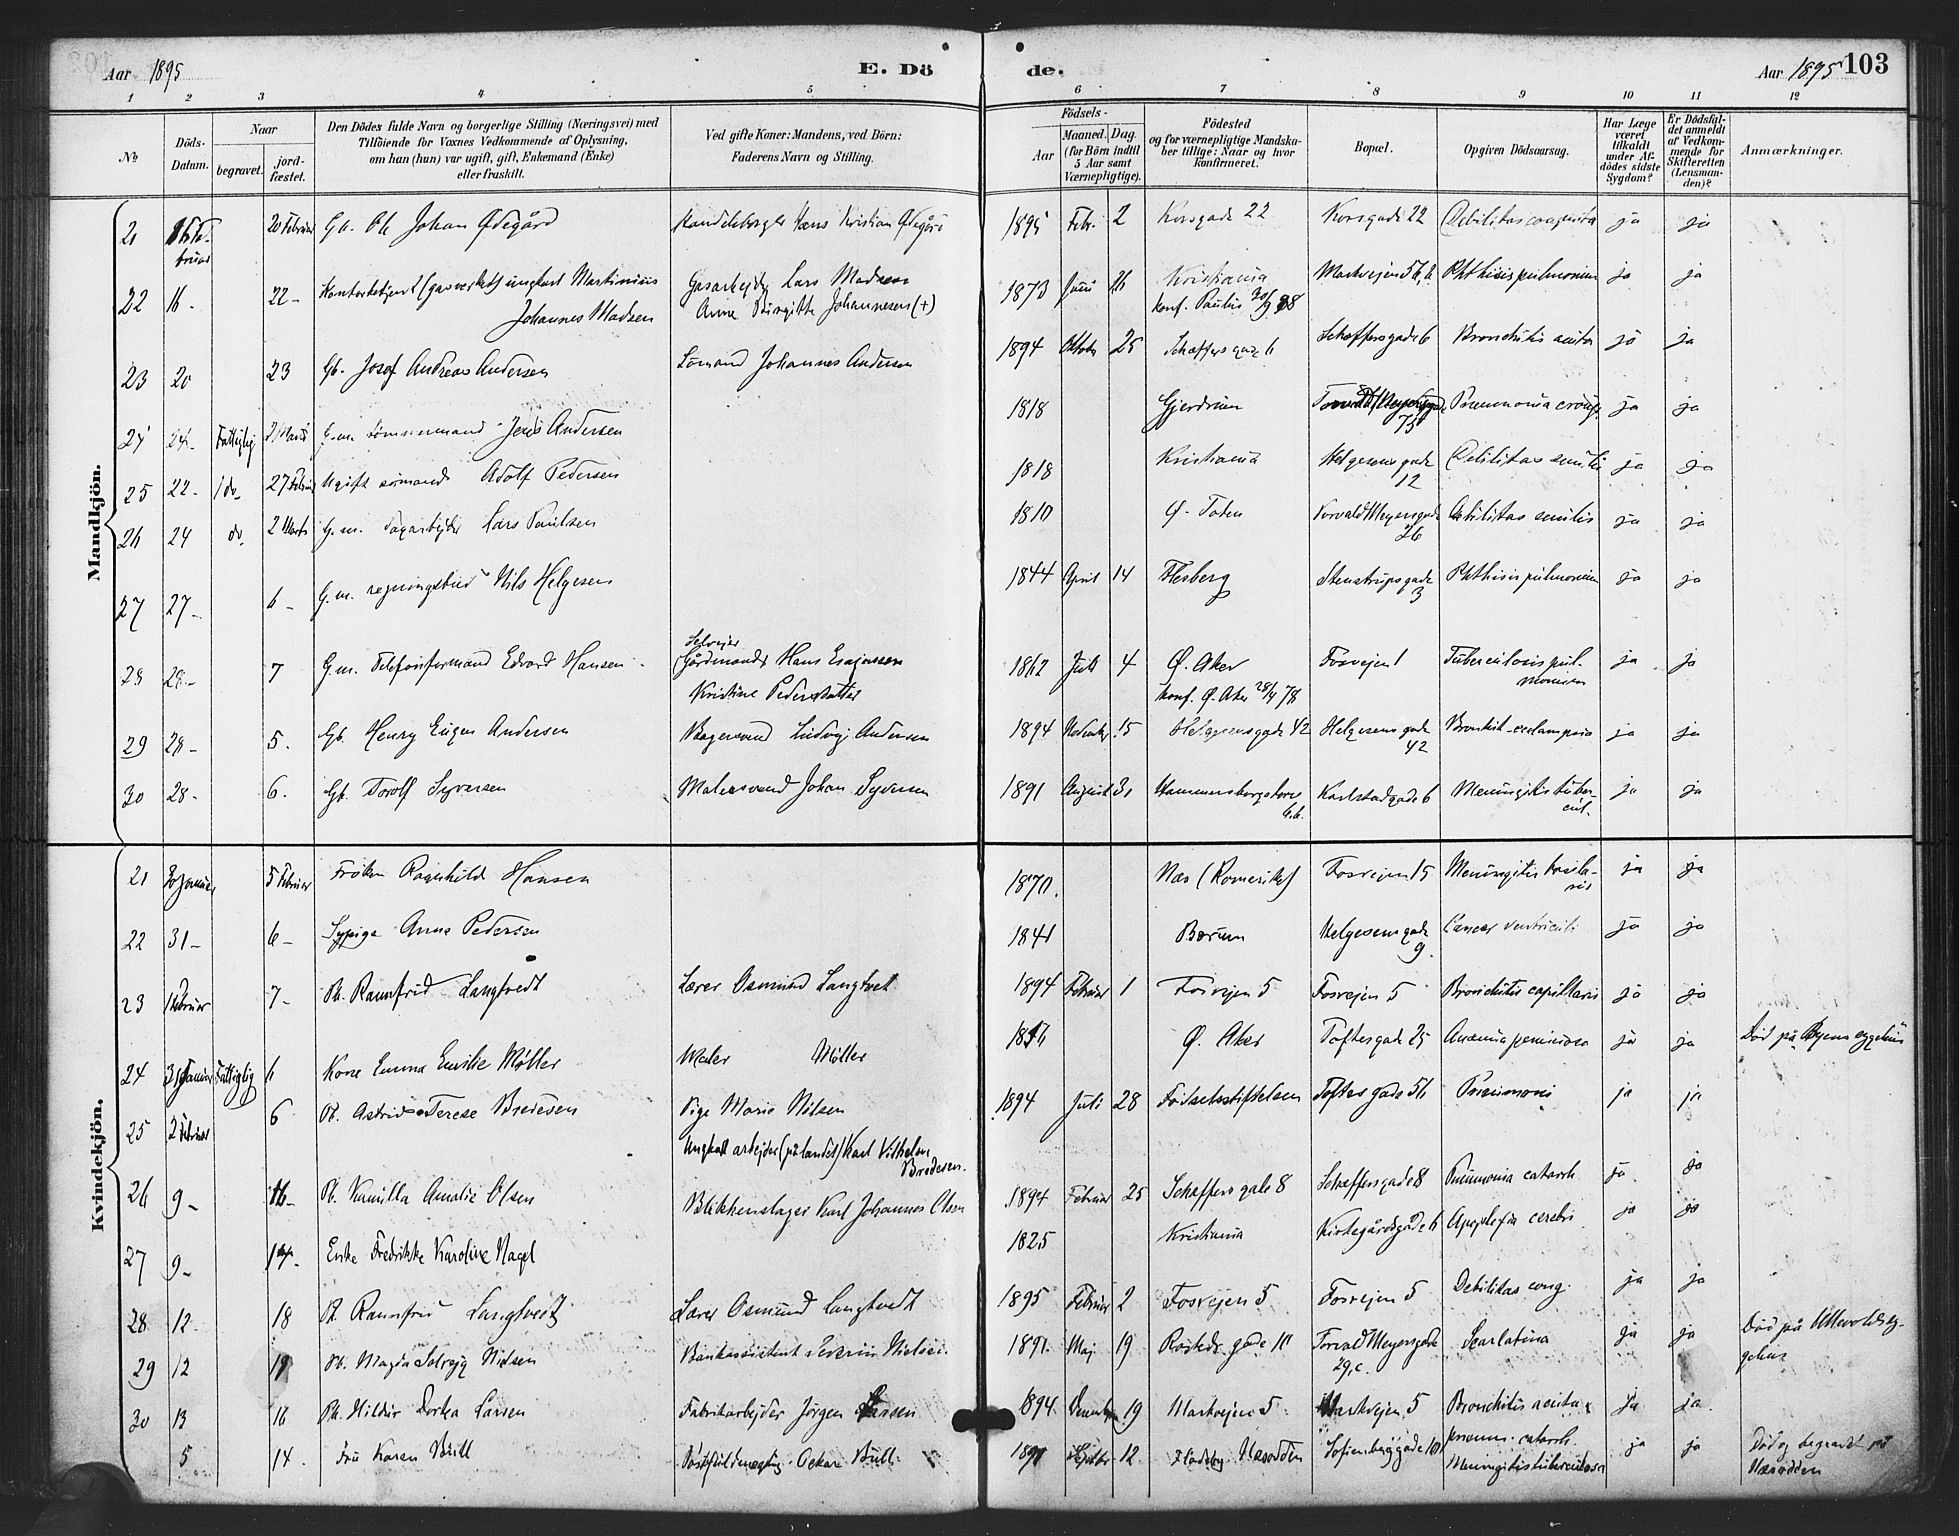 Aar 1895 E. Dö de. Aar 1895 103
1 2 3 4 5 6 7 8 9 10 11 12
No Döds-Datum. Naar begravet. jordfæstet. Den Dödes fulde Navn og borgerlige Stilling (Næringsvei) med Tilföiende for Voxnes Vedkommende af Oplysning, om han (hun) var ugift, gift, Enkemand (Enke) eller fraskilt. Ved gifte Koner: Mandens, ved Börn: Faderens Navn og Stilling. Födsels- Aar Maaned. Dag. (for Börn indtil 5 Aar samt Værnepligtige). Födested og for værnepligtige Mandskaber tillige: Naar og hvor konfirmeret. Bopæl. Opgiven Dödsaarsag. Har Læge været tilkaldt under Afdödes sidste Sygdom? Er Dödsfaldet anmeldt af Vedkommende for Skifteretten (Lensmanden)? Anmærkninger.
Mandkjön.
21 Februar 20 Februar Gb. Ole Johan Ødegård Kristian Ødegård 1895 Febr. 2 Korsgade 22 Korsgade 22 Debilitas congenita ja ja
22 16- 22- (gasverket) ungkarl Martinius Johannes Madsen Gasarbejder Lars Madsen Anne Birgitte Johannesen (+) 1873 Juni 26 Kristiania konf. Paulus 88 Markvejen 56, b Phthisis pulmonum ja ja
23 20 23 Gb. Josef Andreas Andersen Sömand Johannes Andersen 1894 Oktober 25 Schæffersgade 6 Schæffersgade 6 Bronchitis acuta ja ja
24 24- Fattiglig 2 Marts G.m. tömmermand Andersen 1818 Gjerdrum Meyersgade 75 Pneumonia croup. ja ja
25 22- do- 27 Februar Ugift sömand Adolf Pedersen 1818 Kristiania Helgesens gade 12 Debilitas senilis ja ja
26 24 do. 2 Marts G.m. dagarbejder Lars Paulsen 1810 Ø. Toten Torvald Meyersgade 26 Debilitas senilis ja ja
27 27- 6- G.m. regningsbud Nils Helgesen 1844 April 14 Flesberg Stenstrupsgade 3 Phthisis pulmonum ja ja
28 28- 7 G.m. Telefonformand Edvard Hansen Selvejer Gårdmand Hans Esajassen Kristine Pedersdatter 1862 Juli 4 Ø. Aker konf. Ø. Aker 78 Fosvejen 1 Tuberculosis pulmonum ja ja
29 28- 5. Gb. Henry Eugen Andersen Bagersvend Ludvig Andersen 1894 November 15 Helgesensgade 42 Helgesens gade 42 Bronkit-eclampsia ja ja
30 28- 6. Gb. Torolf Syversen Malersvend Johan Syversen 1891 August 31 Hammersborgstorv Karlstadgade 6 Meningitis tubercul. ja ja
Kvindekjön.
21 30 Januar 5 Februar Fröken Ragnhild Hansen 1870. Næs (Romerike) Fosvejen 15 Meningitis basilaris ja ja
22 31- 6- Sypige Anna Pedersen 1841 Bærum Helgesens gade 9 Cancer ventriculi ja ja
23 1 Februar 7- Pb. Rannfrid Langtvedt Lærer Osmund Langtvet 1894 Februar 1 Fosvejen 5 Fosvejen 5 Bronchitis capillaris ja ja
24 31 Januar Fattiglig 6 Kone Emma Emilie Möller Maler Möller Ø. Aker Toftesgade 25 Anæmia perniciosa ja ja Död på Byens sygehus
25 2 Februar 6 Pb. Astrid Terese Bredesen Pige Marie Nilsen Ungkarl arbejder (på landet) Karl Vilhelm Bredesen. 1894 Juli 28 Födselsstiftelsen Toftes gade 56 Pneumoni ja ja
26 9- 16- Pb. Kamilla Amalie Olsen Blikkenslager Karl Johannes Olsen 1894 Februar 25 Schæffersgade 8 Schæffersgade 8 Pneumonia catarrh. ja ja
27 9- 14- Enke Fredrikke Karoline Nagel 1825 Kristiania Kirkegårdsgade 6 Apoplexia cerebri ja ja
28 12- 18 Pb. Rannfrid Langtvedt Lærer Osmund Langtvedt 1895 Februar 2 Fosvejen 5 Fosvejen 5 Debilitas cong. ja ja
29 12 19 Pb. Magda Solvejg Nielsen Bankassistent Severin Nielsen 1891 Maj 19 gade Torvald Meyersgade 29,c. Scarlatina ja ja Död på Ullevolds sygehus
30 13 16 Pb. Hildur Dortea Larsen Fabrikarbejder Jörgen Larsen 1894 December 19 Markvejen 5 Markvejen 5 Bronchitis acuta ja ja
5 14. Fru Karen Bull Oskar Bull 12 Næsodden Sofienberggade pneum. catarrh. Meningitis tuberculosa ja ja Död og begravet på Næsodden